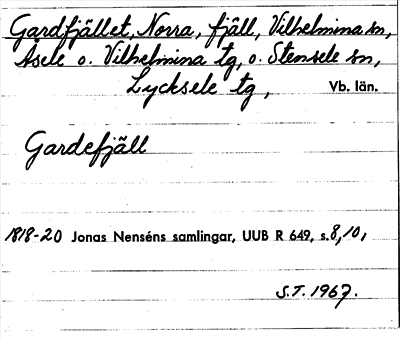 Gardfjället, Norra, fjäll, Vilhelmina sn,
Åsele o. Vilhelmina tg, o. Stensele sn,
Lycksele tg, Vb. län.
Gardefjäll
1818-20 Jonas Nenséns samlingar, UUB R 649, s. 8, 10,
S.T. 1967.